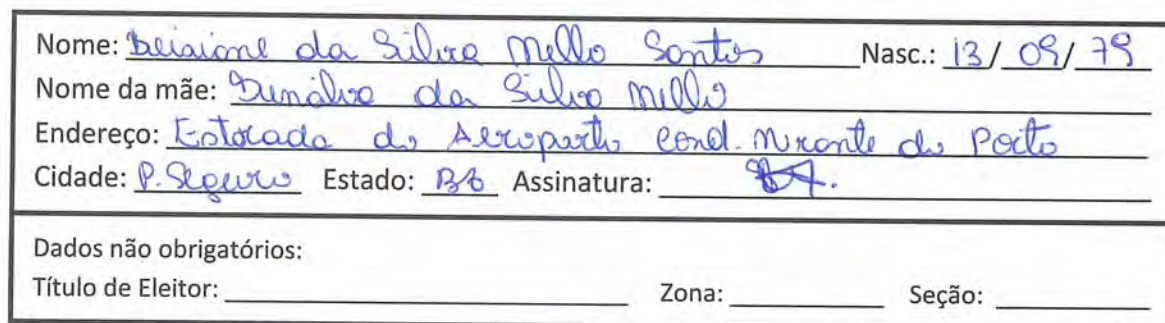 Nome: Deisiane da Silva Mello Santos Nasc.: 13/ 09/ 79
Nome da mãe: Dinalva da Silva Mello
Endereço: Estrada do Aeroporto Cond. Mirante do Porto
Cidade: P. Seguro Estado: BA Assinatura:
Dados não obrigatórios:
Título de Eleitor: Zona: Seção: